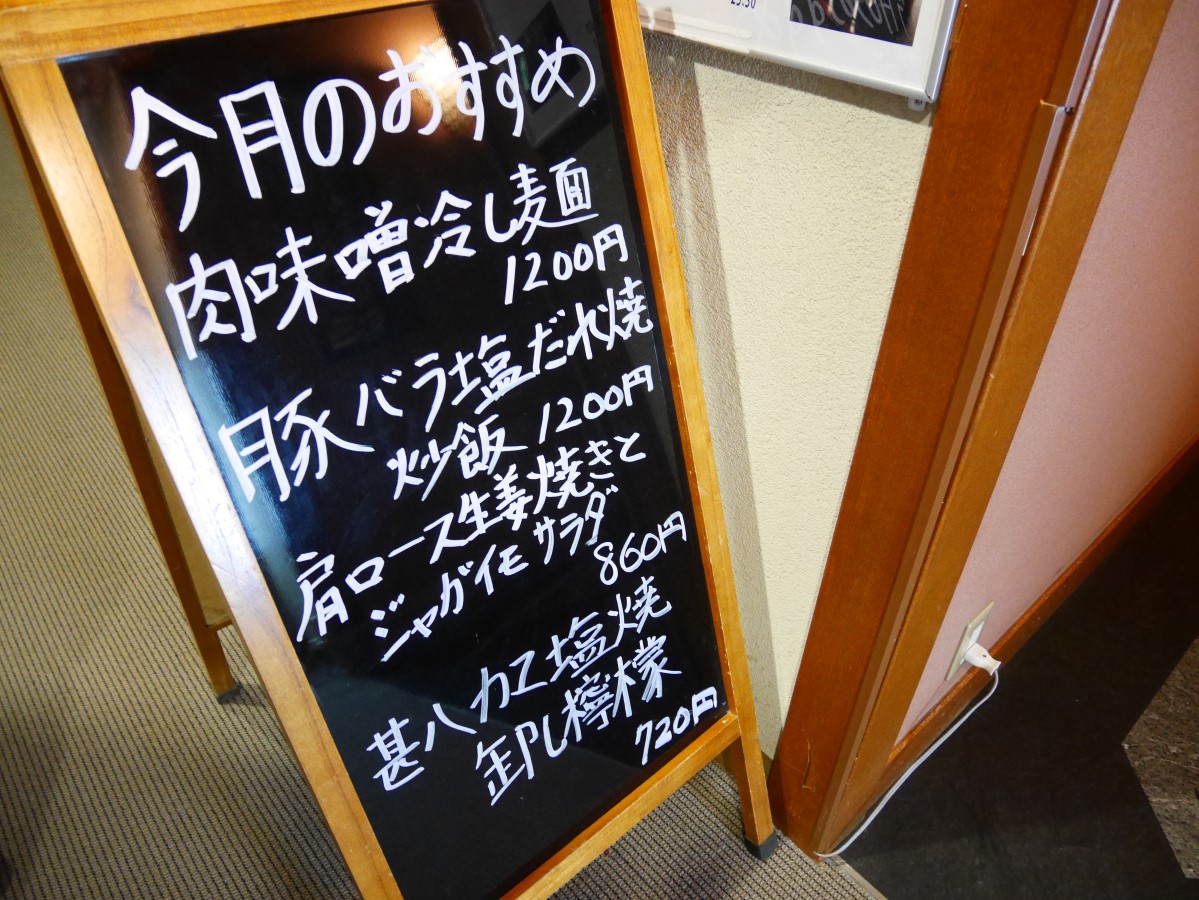 23:30
今月のおすすめ
肉味噌冷し麦面
1200円
豚バラ塩だれ焼
炒飯 1200円
肩ロース生姜焼きと
ジャガイモサラダ
860円
甚八カマ塩焼
卸し檸檬
720円